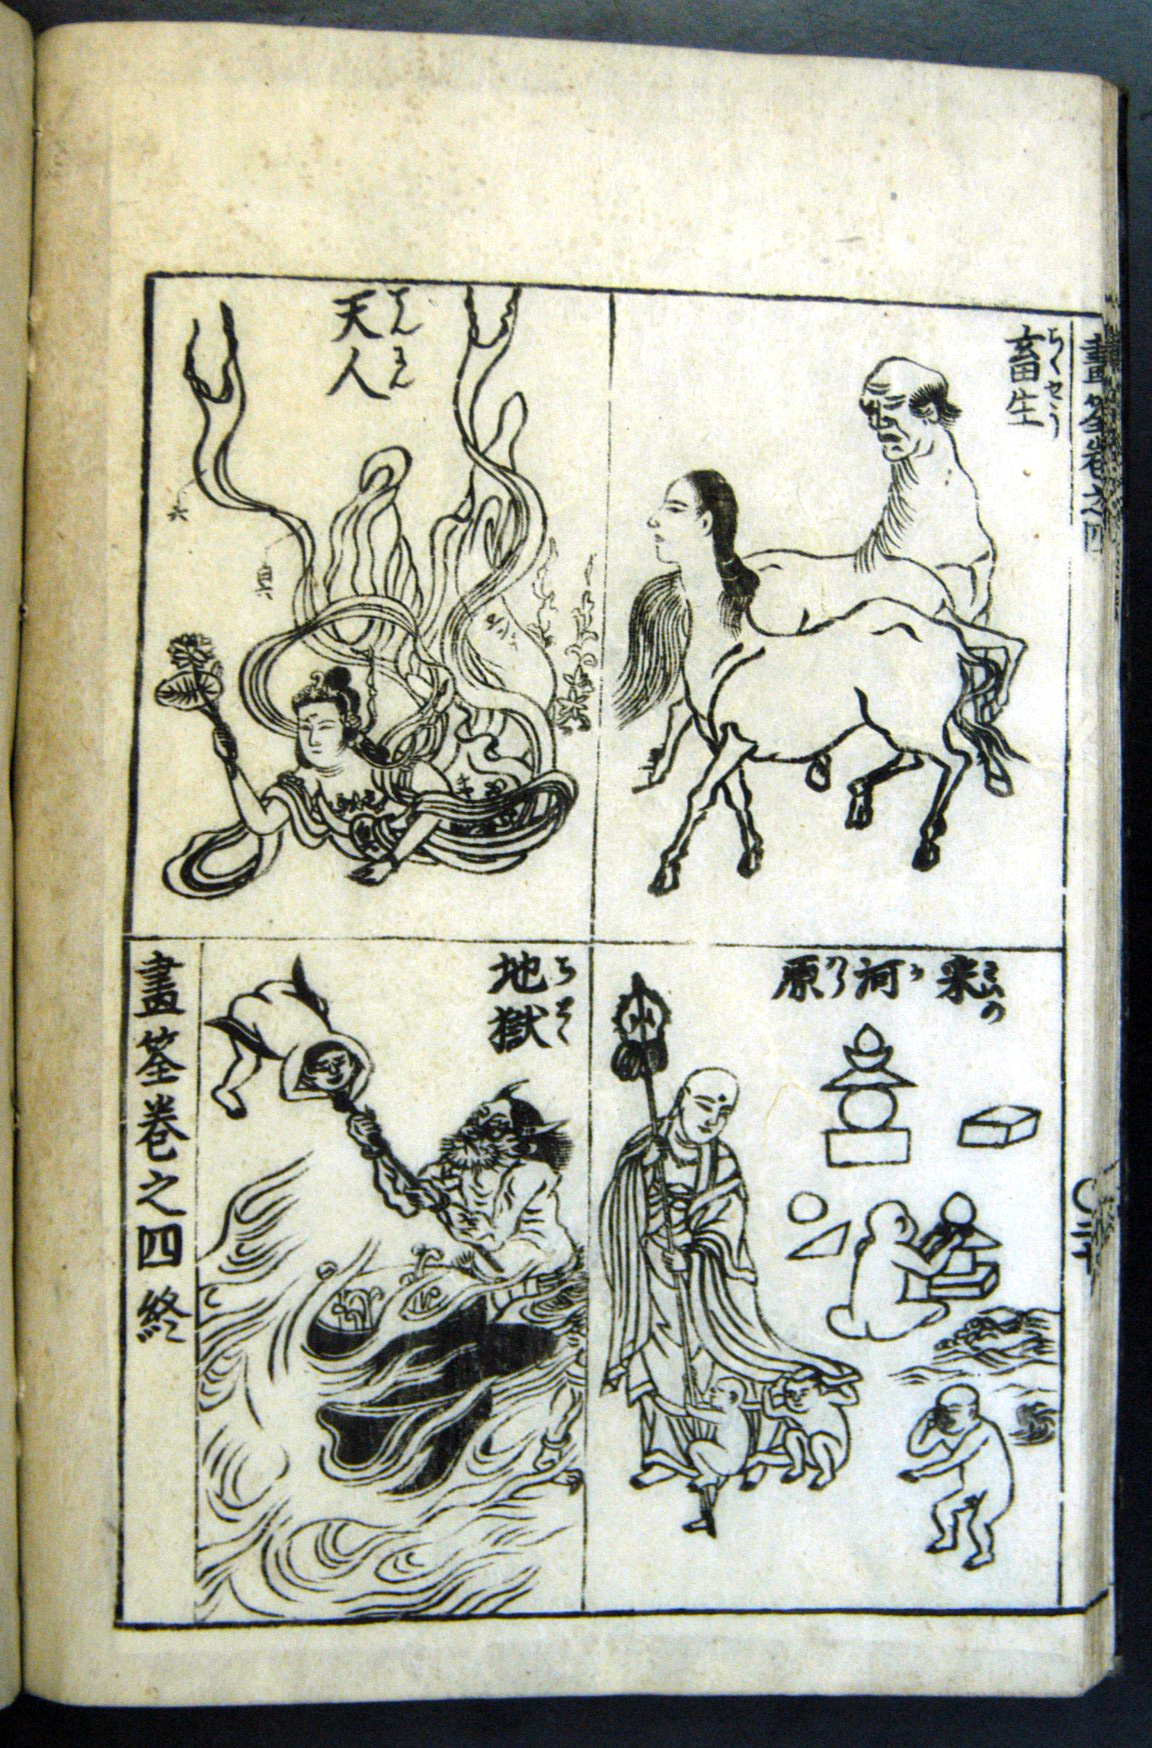 畫筌卷之四
畜生
ちくせう
天人
てんにん
賽河原
さいのかわら
地獄
ちごく
畫筌卷之四終